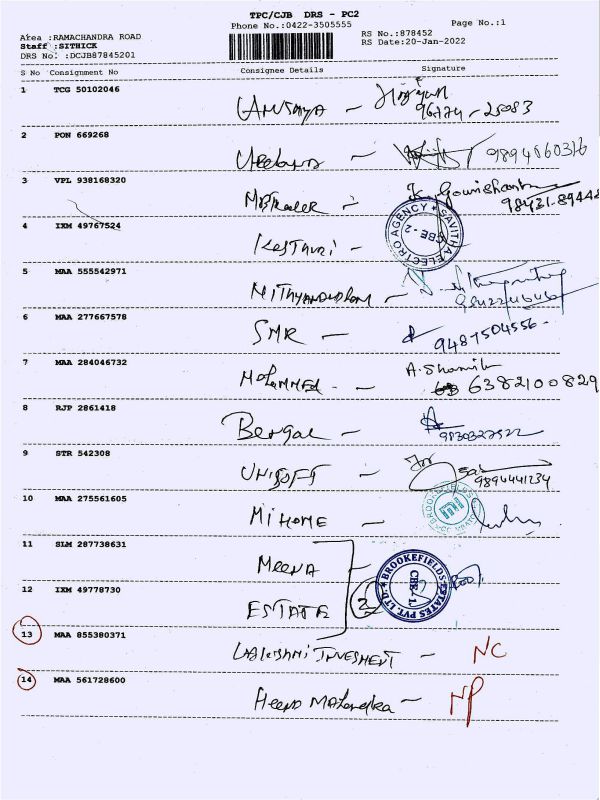 TPC/CJB DRS - PC2
Phone No.:0422-3505555
Page No.:1
Area :RAMACHANDRA ROAD
Staff :SITHICK
DRS No. :DCJB87845201
RS No.:878452
RS Date:20-Jan-2022
S No Consignment No Consignee Details Signature
1 TCG 50102046 ANUSAYA - 96774-25083
2 PON 669268 - 9894860376
3 VPL 938168320 - K. Gowrishankar
98431-89448
4 IXM 49767524 Kasthuri - SAVITHA ELECTRO AGENCY CBE-2
5 MAA 555542971 -
6 MAA 277667578 SMR - 9487504556
7 MAA 284046732 Mohammed - A. Shamik
6382100829
8 RJP 2861418 Bengal - 9830327522
9 STR 542308 UNISOFT - For
9894441234
10 MAA 275561605 MI HOME - BROOKEFIELDS
11 SLM 287738631 MEENA
BROOKEFIELDS ESTATES PVT. LTD. CBE-1
12 IXM 49778730 ESTATE 2
13 MAA 855380371 LAKSHMI INVESMENT - NC
14 MAA 561728600 - NP